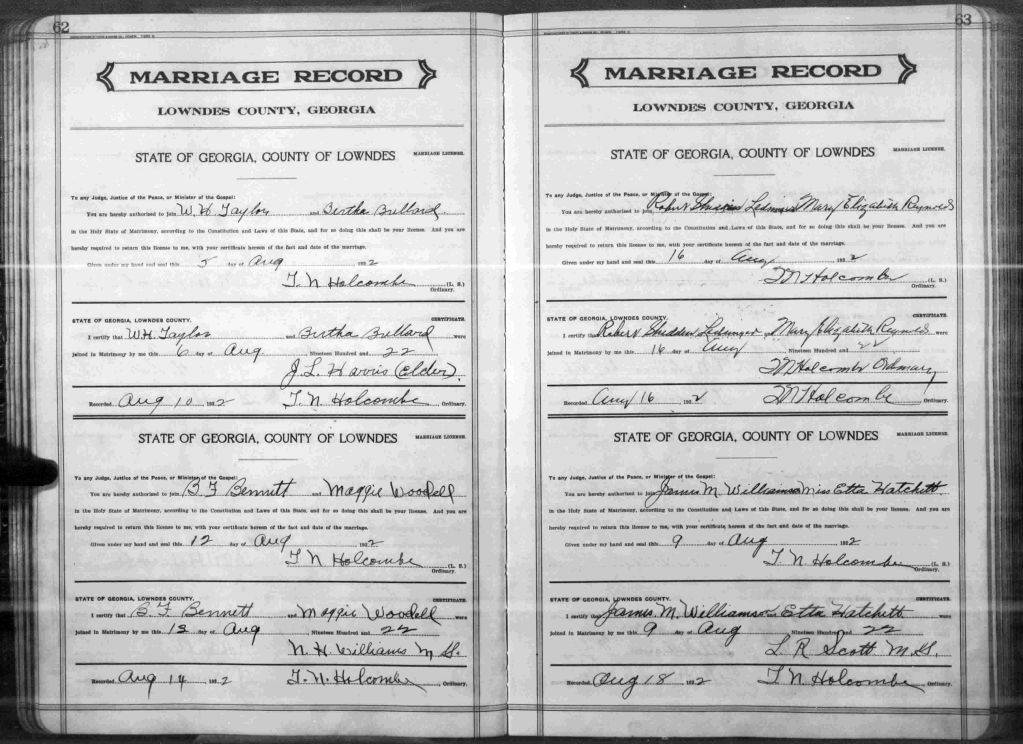 62
MARRIAGE RECORD
LOWNDES COUNTY, GEORGIA
STATE OF GEORGIA, COUNTY OF LOWNDES MARRIAGE LICENSE.
To any Judge, Justice of the Peace, or Minister of the Gospel:
You are hereby authorized to join W. H Taylor and Birtha Bullard
in the Holy State of Matrimony, according to the Constitution and Laws of this State, and for so doing this shall be your license. And you are
hereby required to return this license to me, with your certificate hereon of the fact and date of the marriage.
Given under my hand and seal this 5 day of Aug 1922
T. N Holcombe (L. S.)
Ordinary.
STATE OF GEORGIA, LOWNDES COUNTY. CERTIFICATE.
I certify that W.H. Taylor and Birtha Bullard were
joined in Matrimony by me this 6 day of Aug Nineteen Hundred and 22
J. L. Harris (Elder).
Recorded Aug 10 1922 T. N. Holcombe, Ordinary.
STATE OF GEORGIA, COUNTY OF LOWNDES MARRIAGE LICENSE.
To any Judge, Justice of the Peace, or Minister of the Gospel:
You are hereby authorised to join B F Bennett and Maggie Woodell
in the Holy State of Matrimony, according to the Constitution and Laws of this State, and for so doing this shall be your license. And you are
hereby required to return this license to me, with your certificate hereon of the fact and date of the marriage.
Given under my hand and seal this 12 day of Aug 1922
T. N. Holcombe (L. S.)
Ordinary.
STATE OF GEORGIA, LOWNDES COUNTY. CERTIFICATE.
I certify that B F Bennett and Maggie Woodell were
joined in Matrimony by me this 12 day of Aug Nineteen Hundred and 22
N. H. Williams M G.
Recorded Aug 14 1922 T. N. Holcombe, Ordinary.
63
MARRIAGE RECORD
LOWNDES COUNTY, GEORGIA
STATE OF GEORGIA, COUNTY OF LOWNDES MARRIAGE LICENSE.
To any Judge, Justice of the Peace, or Minister of the Gospel:
You are hereby authorized to join Robert Mary Elizabeth
in the Holy State of Matrimony, according to the Constitution and Laws of this State, and for so doing this shall be your license. And you are
hereby required to return this license to me, with your certificate hereon of the fact and date of the marriage.
Given under my hand and seal this 16 day of Aug 1922
T N Holcombe (L. S.)
Ordinary.
STATE OF GEORGIA, LOWNDES COUNTY. CERTIFICATE.
I certify Robert and Mary Elizabeth were
joined in Matrimony by me this 16 day of Aug Nineteen Hundred and 22
T N Holcombe Ordinary
Recorded Aug 16 1922 T N Holcombe, Ordinary.
STATE OF GEORGIA, COUNTY OF LOWNDES MARRIAGE LICENSE.
To any Judge, Justice of the Peace, or Minister of the Gospel:
You are hereby authorised to join James M. Williams Miss Etta Hatchett
in the Holy State of Matrimony, according to the Constitution and Laws of this State, and for so doing this shall be your license. And you are
hereby required to return this license to me, with your certificate hereon of the fact and date of the marriage.
Given under my hand and seal this 9 day of Aug 1922
T. N. Holcombe (L. S.)
Ordinary.
STATE OF GEORGIA, LOWNDES COUNTY. CERTIFICATE.
I certify James M. Williams Etta Hatchett were
joined in Matrimony by me this 9 day of Aug Nineteen Hundred and 22
L. R Scott M. G.
Recorded Aug 18 1922 T N. Holcombe, Ordinary.